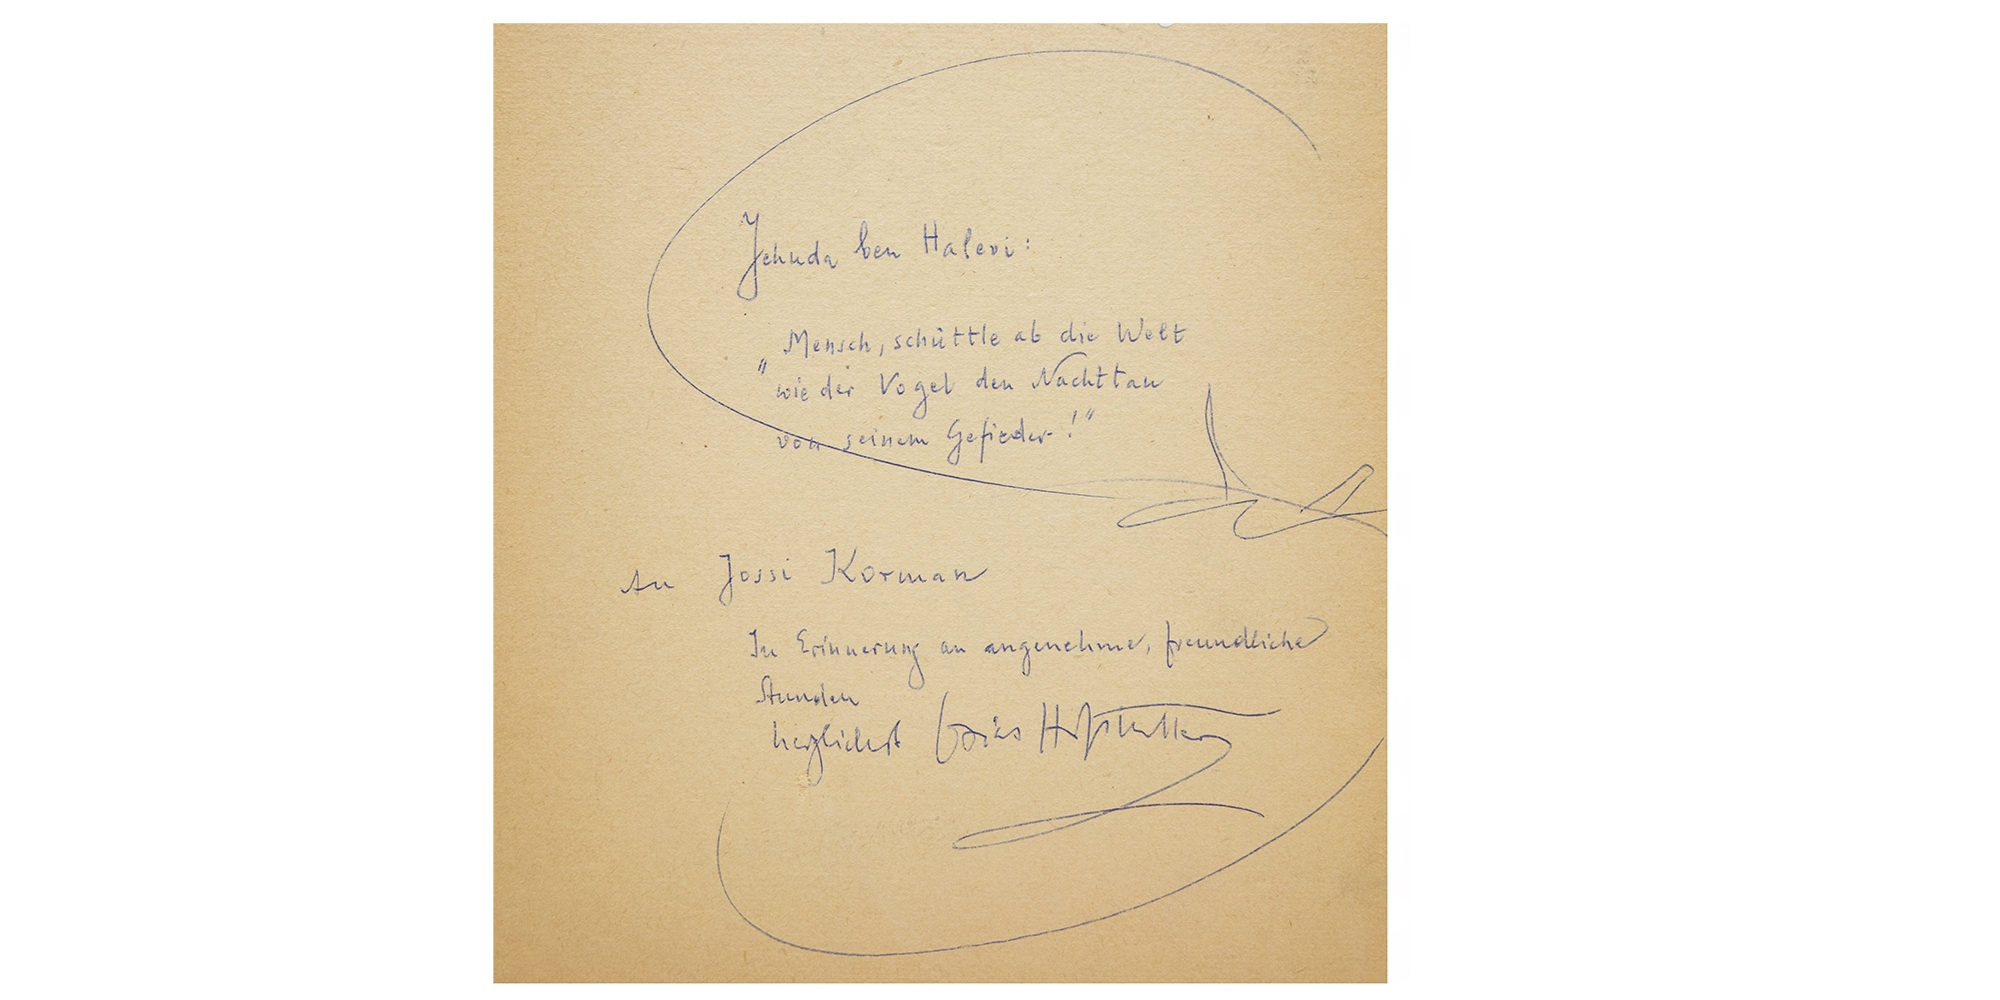 Jehuda ben Halevi:
„Mensch, schüttle ab die Welt
wie der Vogel den Nachttau
von seinem Gefieder!“
An Jossi Korman
In Erinnerung an angenehme, freundliche
Stunden
herzlichst